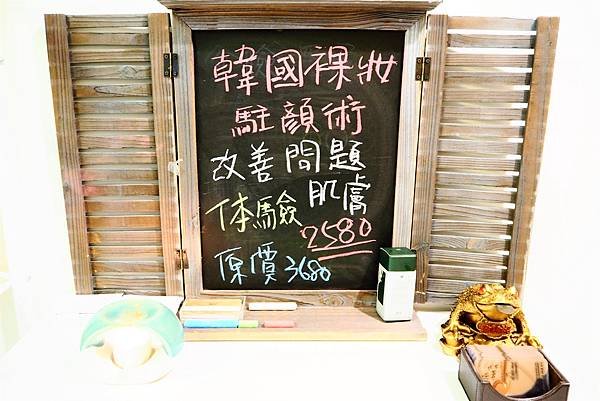 韓國裸妝
駐顏術
改善問題
肌膚
体驗
2580
原價3680